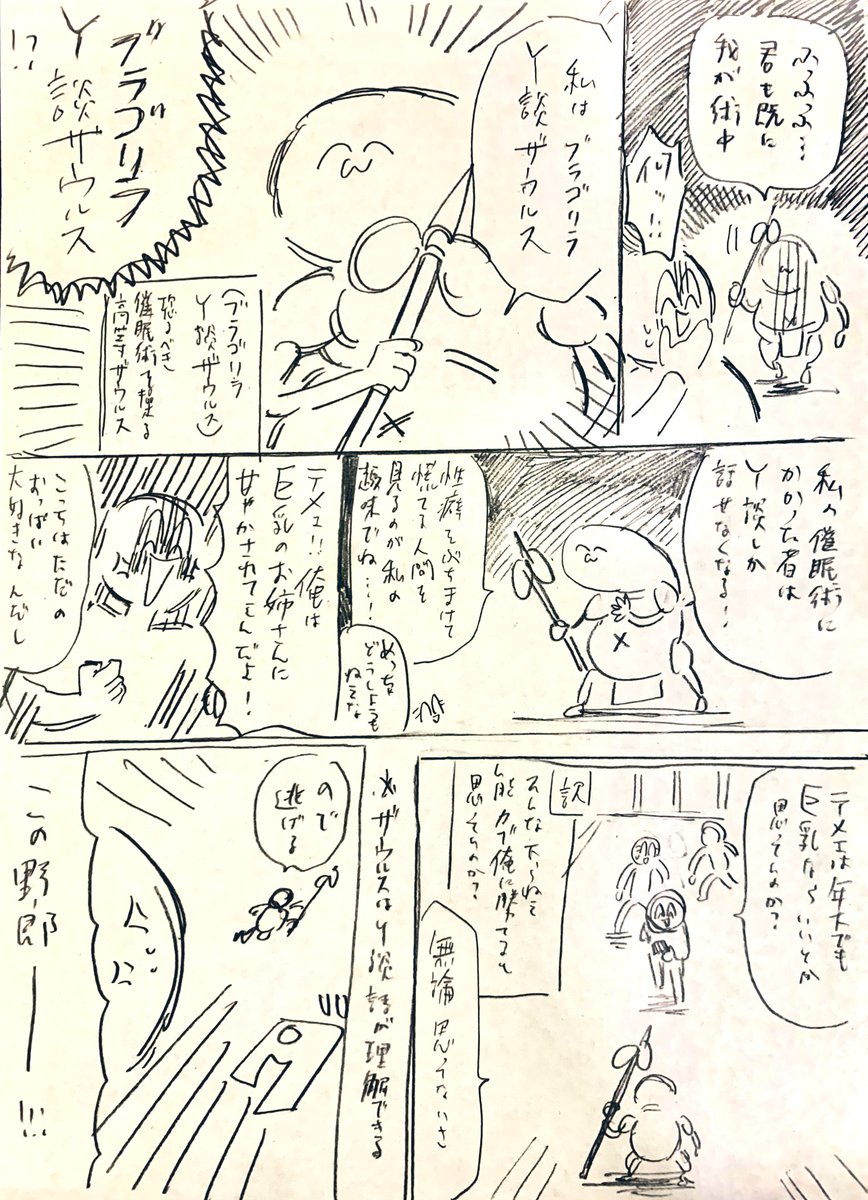 ふふふ…
君も既に
我が術中
何ッ!!
私はブラゴリラ
Y談ザウルス
ブラゴリラ
Y談ザウルス
!?
(ブラゴリラ
Y談ザウルス)
恐るべき
催眠術を操る
高等ザウルス
私の催眠術に
かかった者は
Y談しか
話せなくなる!
性癖をぶちまけて
慌てる人間を
見るのが私の
趣味でね…!
めっちゃ
どうしようも
ねえな
テメェ!!俺は
巨乳のお姉さんに
甘やかされてえんだよ!
こっちはただの
おっぱい
大好きなんだし
テメェは年下でも
巨乳ならいいとか
思ってんのか?
訳
そんな下らねえ
能力で俺に勝てると
思ってんのか?
無論思ってないさ
※ザウルスはY談語が理解できる
ので
逃げる
この野郎――!!!